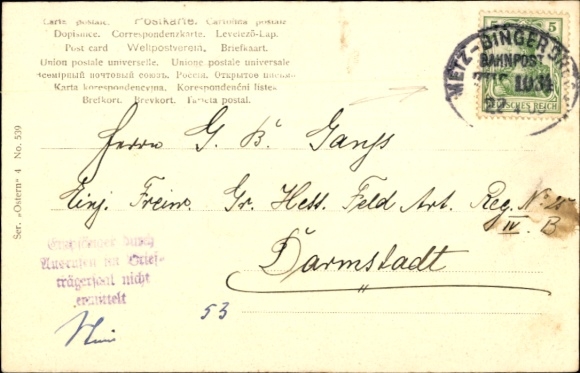 Carte postale. Postkarte. Cartolina postale
Dopisnice. Correspondenzkarte. Levelező-Lap.
Post card Weltpostverein. Briefkaart.
Union postale universelle. Unione postale universale
Всемірный почтовый союзъ. Россія. Открытое письмо.
Karta korespondencyjna. Korespondenční listek
Brefkort. Brevkort. Tarjeta postal.
5
METZ-BINGERBRÜCK
BAHNPOST
ZUG 1034
DEUTSCHES REICH
Herrn G. B. Gangs
Einj. Freiw. Gr. Hess. Feld Art. Reg. No 25
IV. B
Darmstadt
Ser. „Ostern“ 4 No. 539
Empfänger durch
Ausrufen im Brief-
trägersaal nicht
ermittelt
53